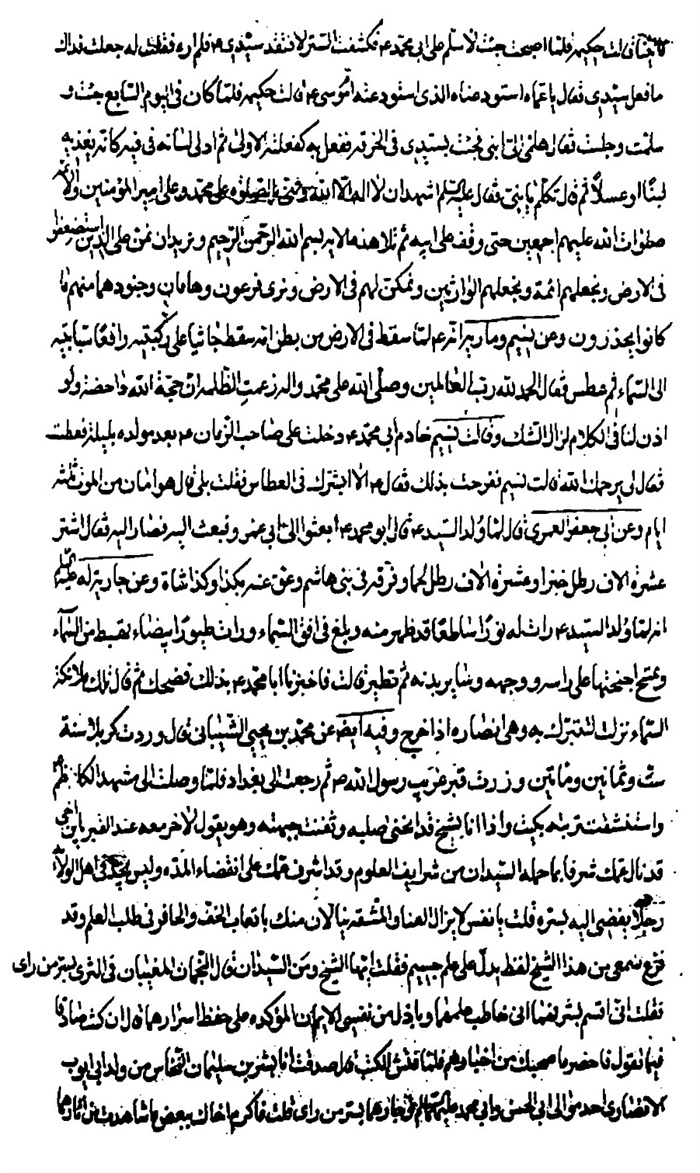 قالت حكيمة فلما اصبحت جئت لاسلم على ابى محمد ع فكشفت الستر لاتفقد سيدى ع فلم اره فقلت له جعلت فداك
ما فعل سيدى فقال يا عماه استودعناه الذى استودعته ام موسى ع قالت حكيمة فلما كان فى اليوم السابع جئت و
سلمت وجلست فقال هلمى الى ابنى فجئت بسيدى فى الخرقه ففعل به كفعلته الاولى ثم ادلى لسانه فى فيه كانه يغذيه
لبنا او عسلا ثم قال تكلم يا بنى فقال عليه السلم اشهد ان لا اله الا الله وثنى بالصلوة على محمد وعلى امير المؤمنين والائمه
صلوات الله عليهم اجمعين حتى وقف على ابيه ثم تلا هذه الايه بسم الله الرحمن الرحيم ونريد ان نمن على الذين استضعفوا
فى الارض ونجعلهم ائمة ونجعلهم الوارثين ونمكن لهم فى الارض ونرى فرعون وهامان وجنودهما منهم ما
كانوا يحذرون وعن نسيم وماريه انه ع لما سقط فى الارض من بطن امه سقط جاثيا على ركبتيه رافعا سبابتيه
الى السماء ثم عطس فقال الحمد لله رب العالمين وصلى الله على محمد واله زعمت الظلمه ان حجة الله داحضة ولو
اذن لنا فى الكلام لزال الشك وقالت نسيم خادم ابى محمد ع دخلت على صاحب الزمان ع بعد مولده بليلة فعطست
فقال لى يرحمك الله قالت نسيم ففرحت بذلك فقال ع الا ابشرك فى العطاس فقلت بلى قال هو امان من الموت ثلثه
ايام وعن ابى جعفر العمرى قال لما ولد السيد ع قال ابو محمد ع ابعثوا الى ابى عمرو فبعث اليه فصار اليه فقال اشتر
عشرة الاف رطل خبزا وعشرة الاف رطل لحما وفرقه فى بنى هاشم وعق عنه بكذا وكذا شاة وعن جارية له عليه السلم
انه لما ولد السيد ع رات له نورا ساطعا قد ظهر منه وبلغ فى افق السماء ورات طيورا بيضاء تهبط من السماء
وتمسح اجنحتها على راسه ووجهه وسائر بدنه ثم تطير قالت فاخبرنا ابا محمد ع بذلك فضحك ثم قال تلك ملائكة
السماء نزلت لتتبرك به وهى انصاره اذا خرج وفيه ايضا عن محمد بن يحيى الشيبانى قال وردت كربلا سنة
ست وثمانين ومائتين وزرت قبر غريب رسول الله ص ثم رجعت الى بغداد فلما وصلت الى مشهد الكاظم ع
واستنشقت تربته بكيت واذا انا بشيخ قد انحنى صلبه وثفنت جبهته وهو يقول لاخر معه عند القبر يا بن اخى
قد نال عمك شرفا بما حمله السيدان من شرايف العلوم وقد اشرف عمك على انقضاء المدة وليس يجد فى اهل الولايه
رجلا يفضى اليه بسره قلت يا نفس لا يزال العنا والمشقه ينالان منك باتعاب الخف والحافر فى طلب العلم وقد
قرع سمعى من هذا الشيخ لفظ يدل على علم جسيم فقلت ايها الشيخ ومن السيدان قال النجمان المغيبان فى الثرى بسر من راى
فقلت انى اقسم بشرفهما انى خاطب علمهما وباذل من نفسى الايمان المؤكده على حفظ اسرارهما قال ان كنت صادقا
فيما تقول فاحضر ما صحبك من اخبارهم فلما فتش الكتب قال صدقت انا بشر بن سليمان النخاس من ولد ابى ايوب
الانصارى احد موالى ابى الحسن وابى محمد عليهما السلام وجارهما بسر من راى قلت فاكرم اخاك ببعض ما شاهدت من اثارهما